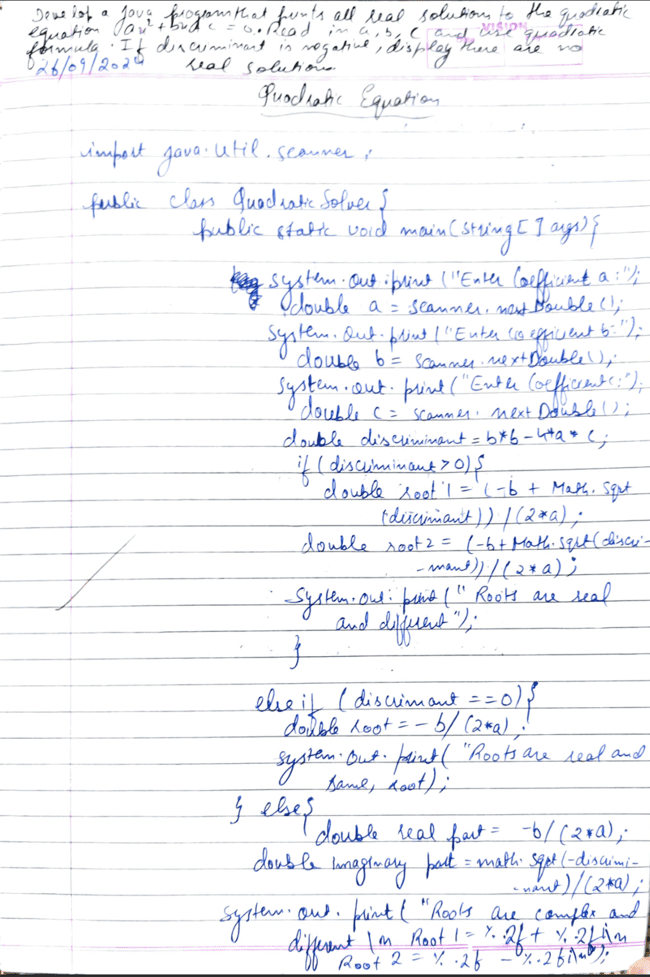 Develop a Java program that prints all real solutions to the quadratic
equation ax² + bx + c = 0. Read in a, b, c and use quadratic
formula. If discriminant is negative, display there are no
real solution.
VISION
26/09/2024
Quadratic Equation
import java.util.scanner;
public class QuadraticSolver{
public static void main(string[] args){
system.out.print("Enter Coefficient a:");
double a = scanner.nextDouble();
system.out.print("Enter coefficient b:");
double b = scanner.nextDouble();
system.out.print("Enter Coefficient c:");
double c = scanner.nextDouble();
double discriminant = b*b-4*a*c;
if (discriminant > 0){
double root 1 = (-b + Math.sqrt
(discrimant)) / (2*a);
double root 2 = (-b + Math.sqrt(discri-
-mant)) / (2*a);
system.out.print(" Roots are real
and different");
}
else if (discrimant == 0){
double root = -b / (2*a);
system.out.print( "Roots are real and
same, root);
} else{
double real part = -b / (2*a);
double imaginary part = math.sqrt(-discrimi-
-nant) / (2*a);
system.out.print( "Roots are complex and
different \n Root 1 = %.2f + %.2fi\n
Root 2 = %.2f - %.2fi\n");